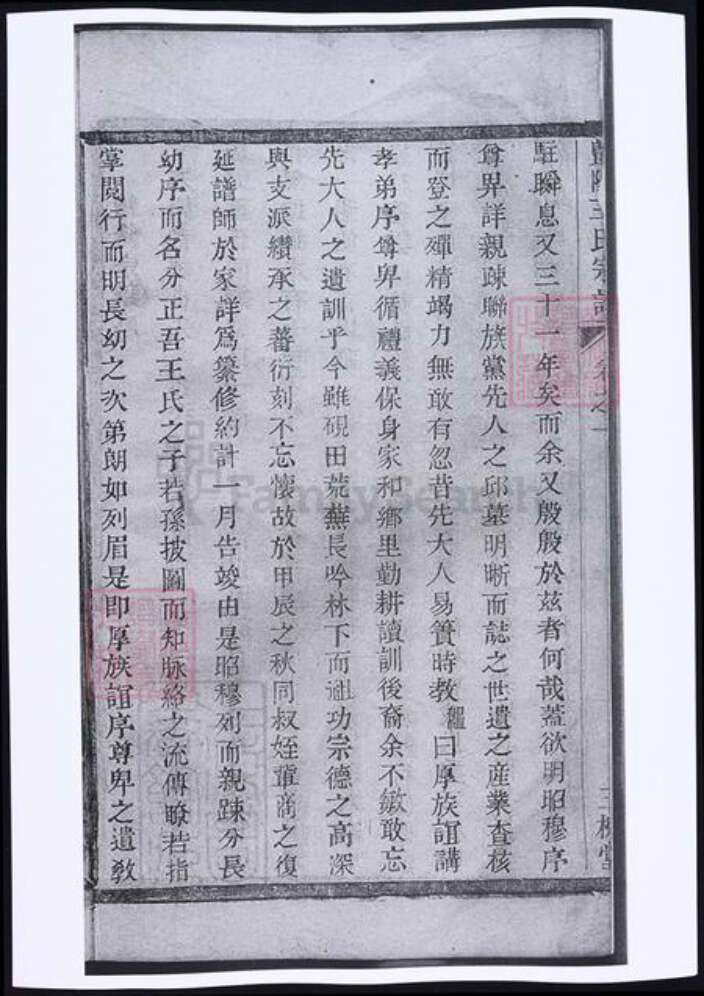 王氏宗譜 卷之一 三槐堂
駐瞬息又三十一年矣而余又殷殷於茲者何哉蓋欲明昭穆序
尊卑詳親疎聯族黨先人之邱墓明晰而誌之世遺之産業查核
而登之殫精竭力無敢有忽昔先大人易簀時教 曰厚族誼講
孝弟序尊卑循禮義保身家和鄉里勤耕讀訓後裔余不敏敢忘
先大人之遺訓乎今雖硯田荒蕪長吟林下而祖功宗德之高深
與支派纘承之蕃衍刻不忘懷故於甲辰之秋同叔姪輩商之復
延譜師於家詳爲纂修約計一月告竣由是昭穆列而親踈分長
幼序而名分正吾王氏之子若孫披圖而知脉絡之流傳瞭若指
掌閱行而明長幼之次第朗如列眉是即厚族誼序尊卑之遺教
FamilySearch